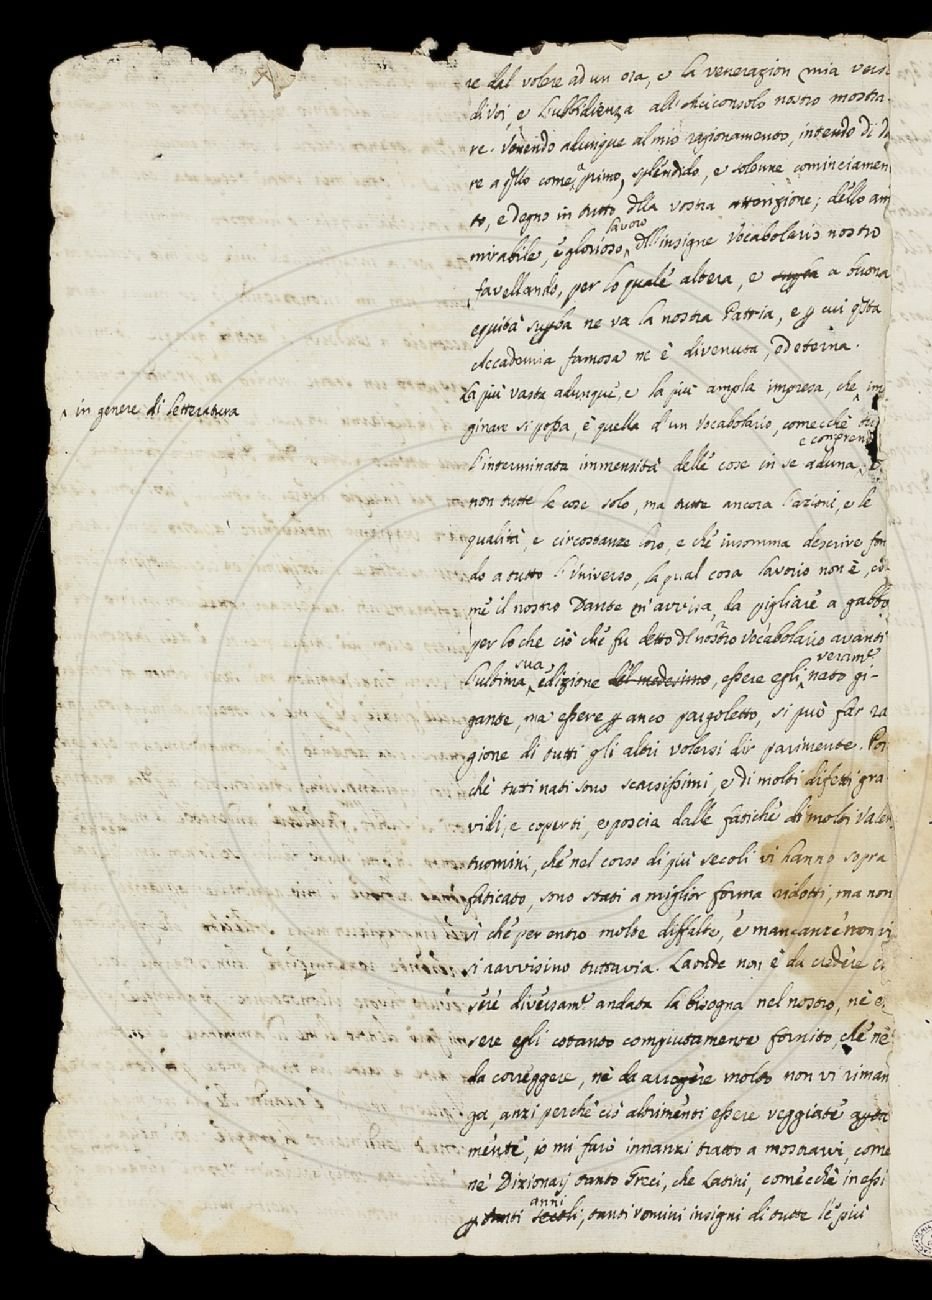 re dal volere ad un ora, e la venerazion mia verso
di Voi, e l'ubbidienza all'Arciconsolo nostro mostra-
re. Venendo adunque al mio ragionamento, intendo di da
re a qllo come a primo, splendido, e solenne cominciamen
to, e degno in tutto dlla vostra attenzione; dello am
mirabile, e glorioso lavoro dll'insigne Vocabolario nostro
favellando, per lo quale altera, e supba a buona
equità supba ne va la nostra Patria, e p cui qsta
Accademia famosa ne è divenuta, ed eterna.
La più vasta adunque, e la più ampla impresa, che im
^ in genere di letteratura
ginare si possa, è quella d'un Vocabolario, comecchè
l'interminata immensità delle cose in se aduna, e compren
non tutte le cose solo, ma tutte ancora l'azioni, e le
qualità, e circostanze loro, e che insomma descrive fon
do a tutto l'Universo, la qual cosa lavorio non è, co-
me il nostro Dante n'avvisa, da pigliare a gabbo
per lo che ciò che fu detto dl nostro Vocabolario avanti
l'ultima sua edizione del medesimo, essere egli veramte nato gi-
gante, ma essere p anco pargoletto, si può far ra
gione di tutti gli altri volersi dir parimente. Poi
chè tutti nati sono scarsissimi, e di molti difetti gra
vidi, e coperti, e poscia dalle fatiche di molti Valen
tuomini, che nel corso di più secoli vi hanno sopra
faticato, sono stati a miglior forma ridotti, ma non
sì che per entro molte diffalte, e mancanze non vi
si ravvisino tuttavia. Laonde non è da credere es
sere diversamte andata la bisogna nel nostro, nè es
sere egli cotanto compiutamente fornito, che nè
da correggere, nè da arrogere molto non vi riman
ga, anzi perchè ciò altrimenti essere veggiate apta
mente, io mi farò innanzi tratto a mostrarvi, come
ne' Dizionarj tanto Greci, che Latini, comecchè in essi
p tanti secoli anni, tanti uomini insigni di tutte le più